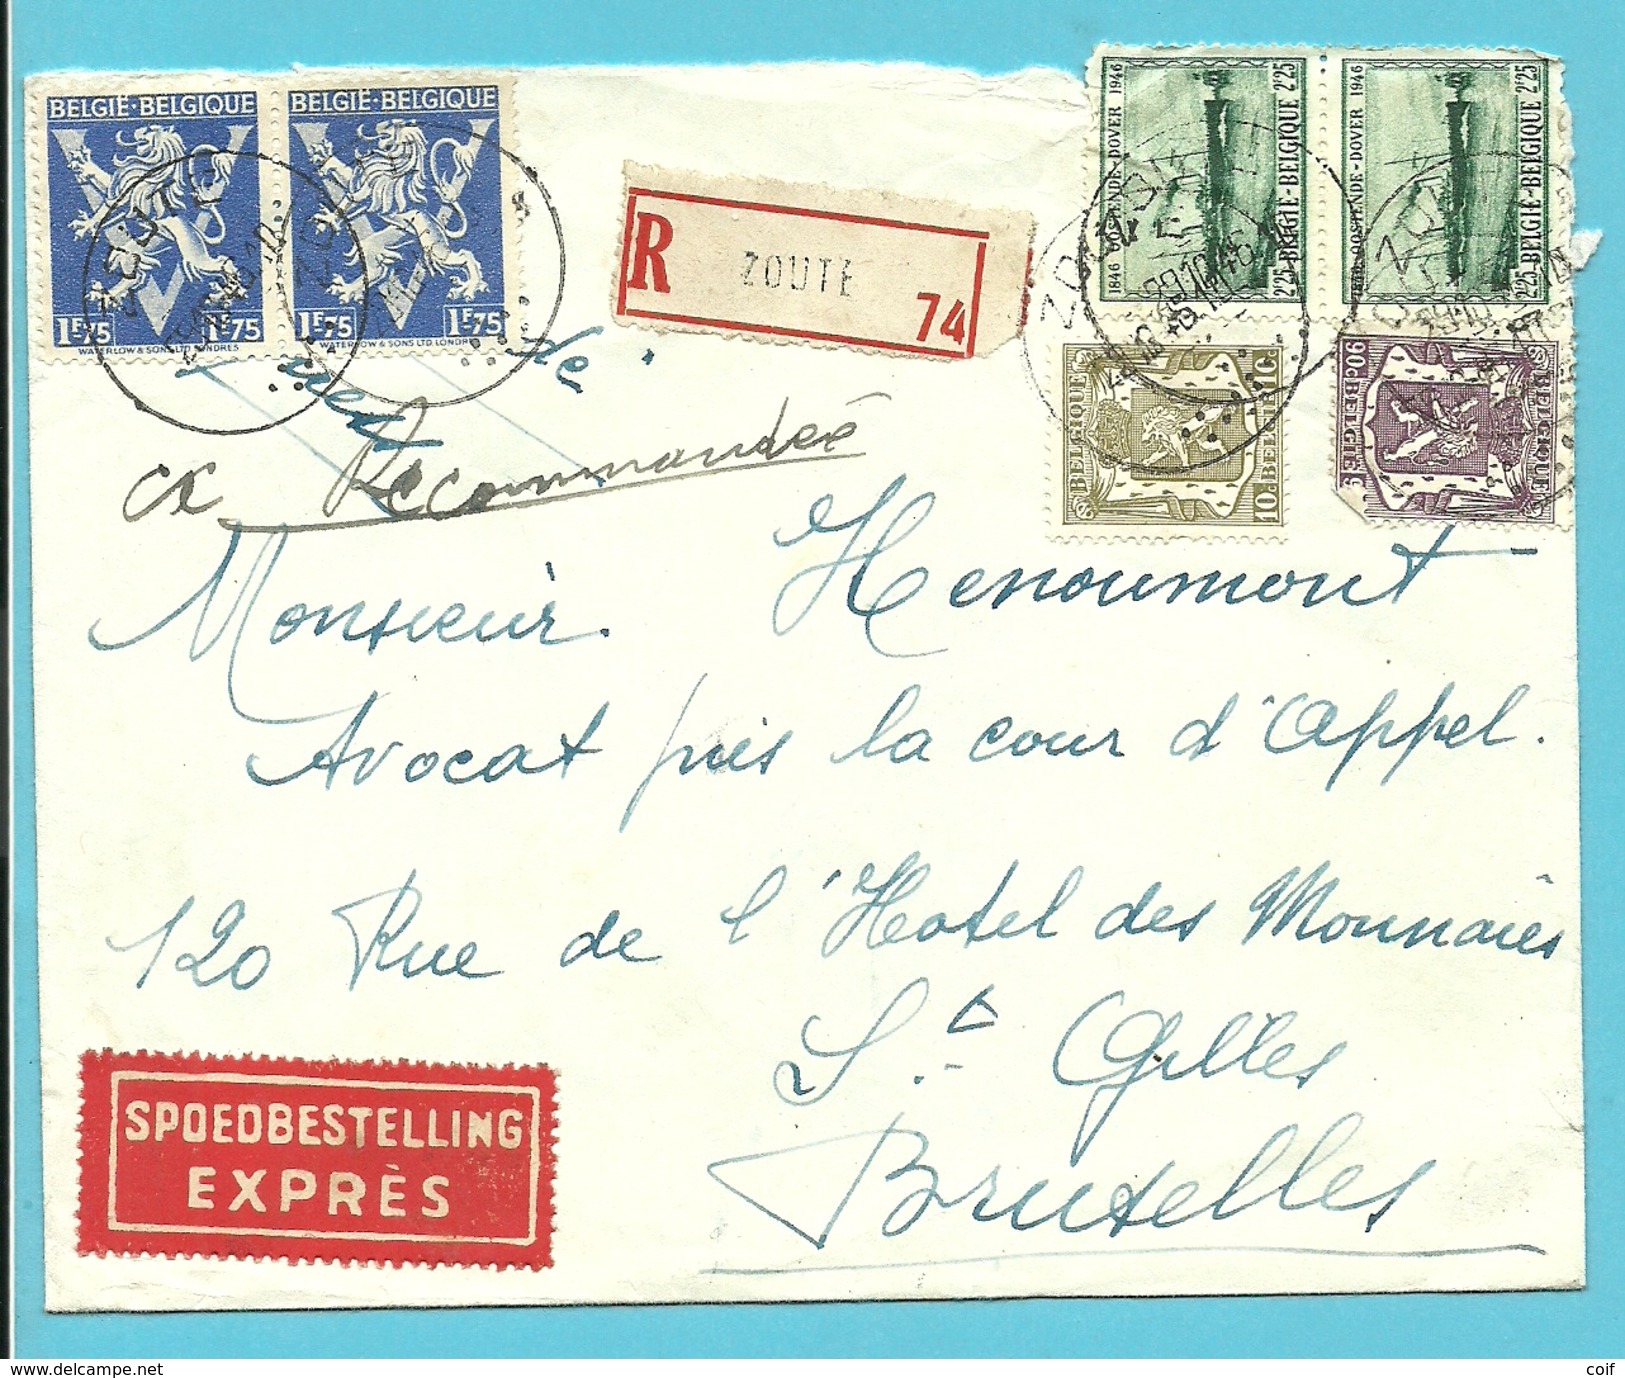 BELGIË·BELGIQUE BELGIË·BELGIQUE
1F75 1F75 1F75 1F75
WATERLOW & SONS LTD LONDRES WATERLOW & SONS LTD LONDRES
ZOUTE
R ZOUTE 74
1846 OOSTENDE-DOVER 1946
2F25 BELGIË-BELGIQUE 2F25
1846 OOSTENDE-DOVER 1946
2F25 BELGIË-BELGIQUE 2F25
ZOUTE
29.10.46
BELGIQUE
10c BELGIË 10c
90c BELGIË 90c
BELGIQUE
Recommandée
Monsieur. Henoumont
Avocat près la cour d'Appel.
120 Rue de l'Hotel des Monnaies
St. Gilles
Bruxelles
SPOEDBESTELLING
EXPRÈS
www.delcampe.net
coif